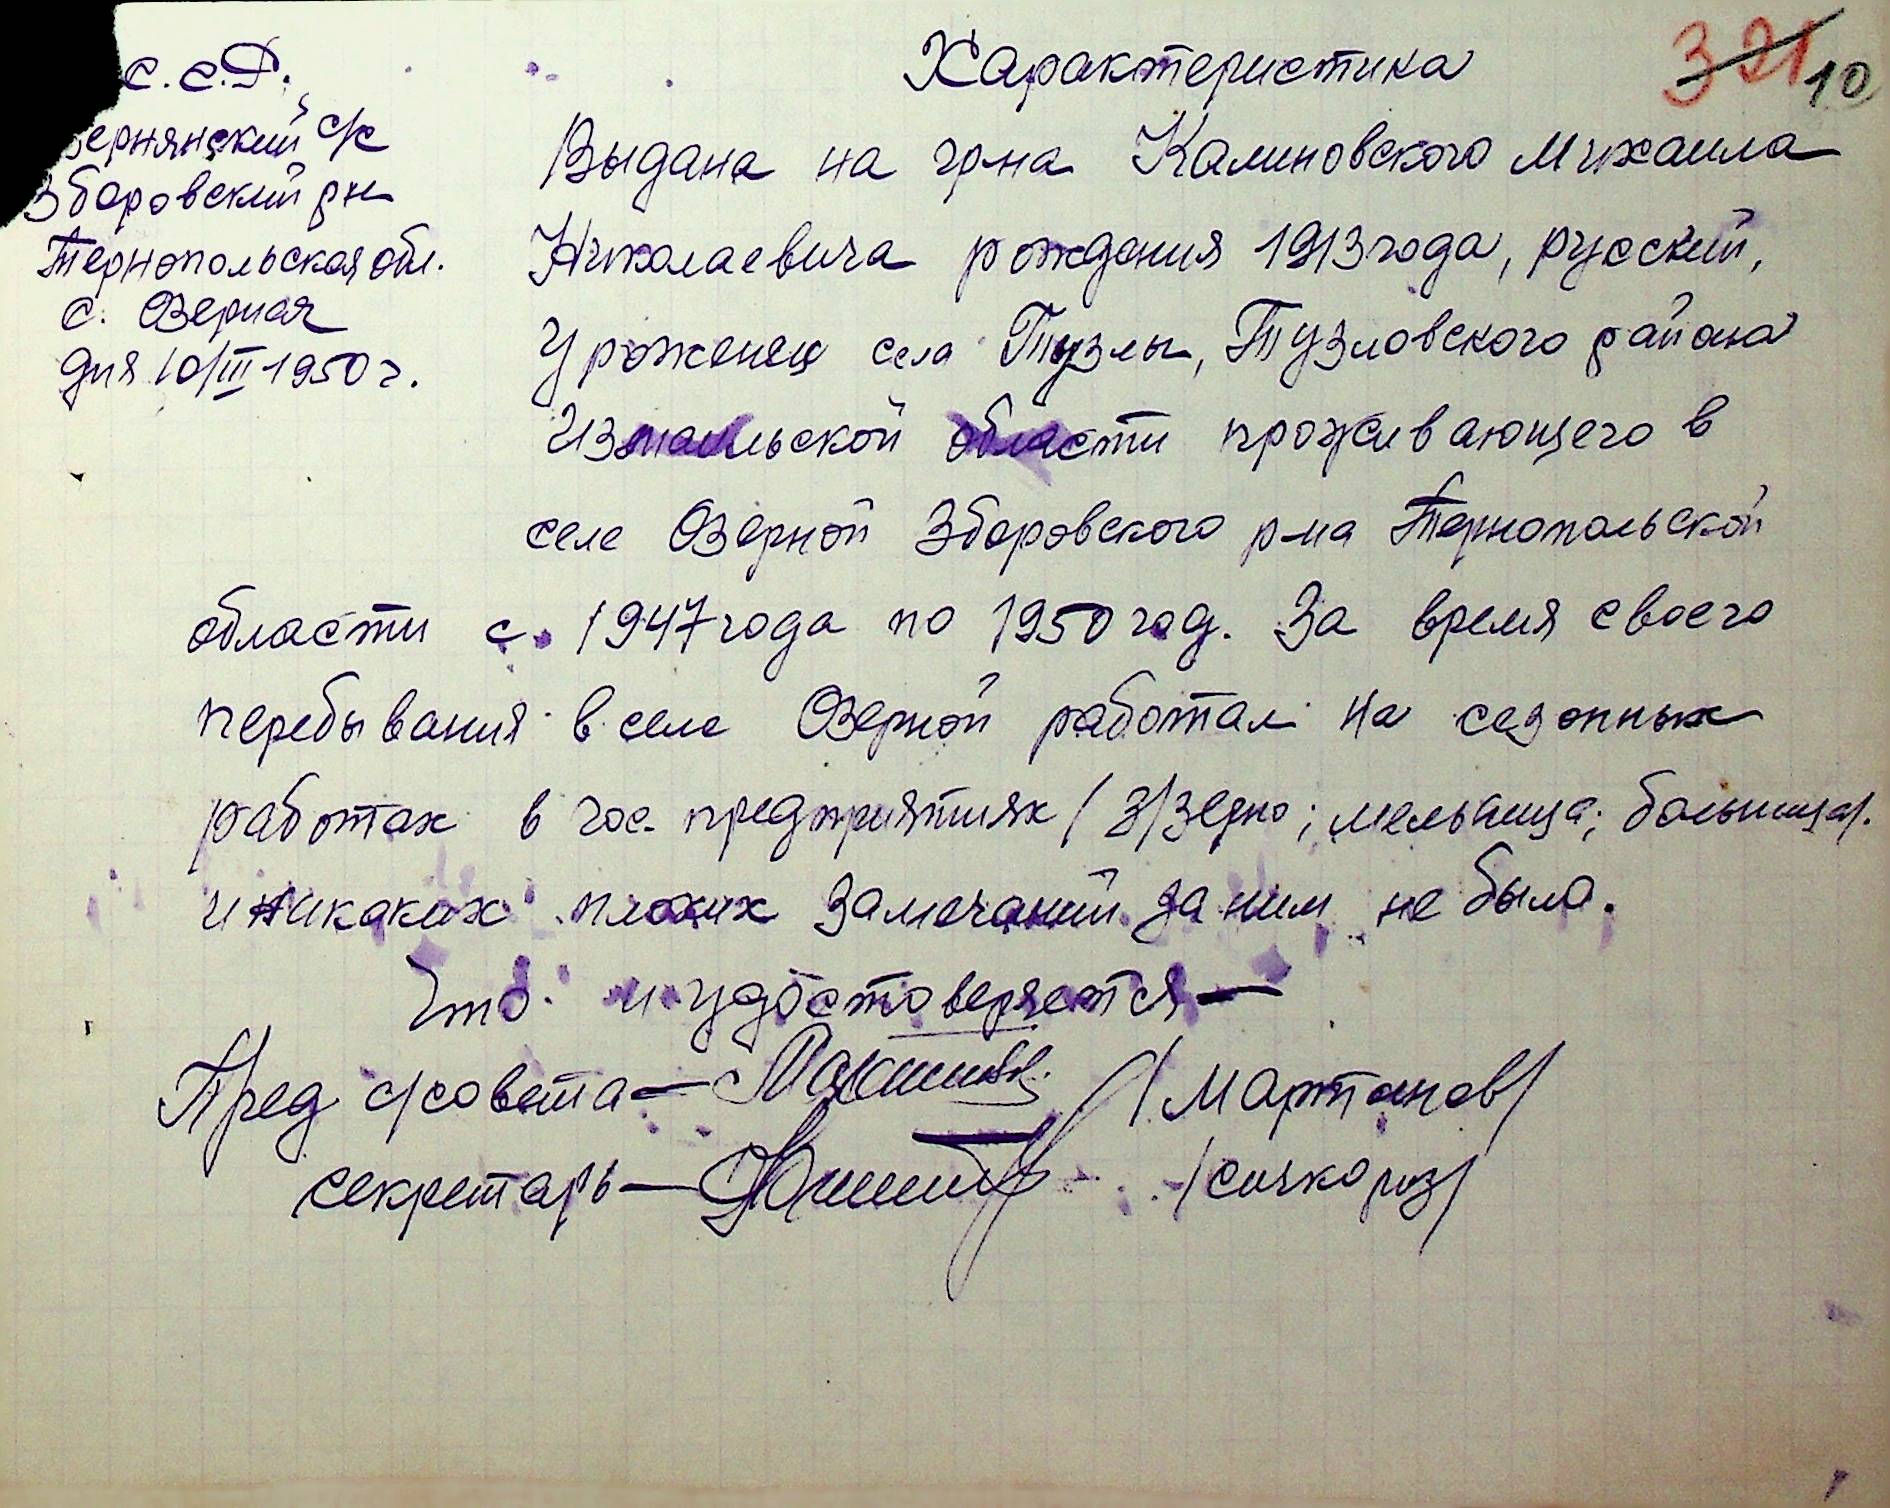 Характеристика
321 10
с.с.Р.
зернянский с/с
Зборовский рн
Тернопольская обл.
с. Озерная
дня 10/III 1950 г.
Выдана на гр-на Калиновского Михаила
Николаевича рождения 1913 года, русский,
Уроженец села Тузлы, Тузловского района
Измаильской области проживающего в
селе Озерной Зборовского р-на Тернопольской
области с. 1947 года по 1950 год. За время своего
перебывания в селе Озерной работал на сезонных
работах в гос. предприятиях / З/Зерно; мельница; больница/.
и никаких плохих замечаний за ним не было.
Что и удостоверяется —
Пред с/совета — /Мартанов/
секретарь — /Сичкориз/